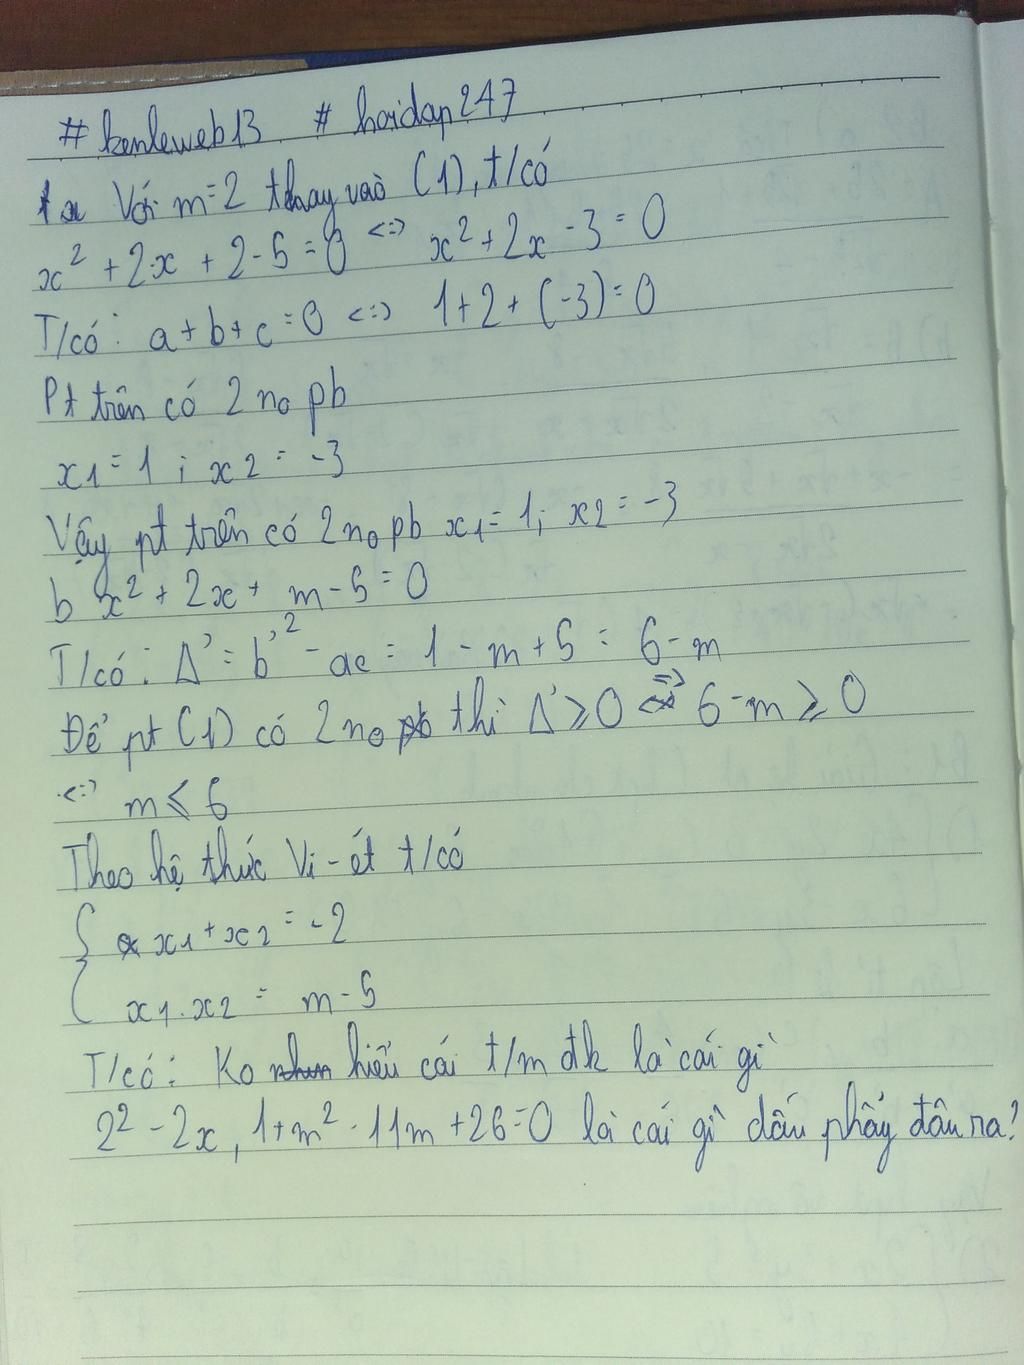 #kenleweb13 # hoidap247
1a Với m=2 thay vào (1), t/có
x² + 2x + 2-5 = 0 <=> x² + 2x - 3 = 0
T/có: a+b+c = 0 <=> 1+2+(-3) = 0
Pt trên có 2 n₀ pb
x1 = 1 ; x2 = -3
Vậy pt trên có 2 n₀ pb x1 = 1; x2 = -3
b x² + 2x + m-5 = 0
T/có: Δ' = b'² - ac = 1 - m + 5 = 6 - m
Để pt (1) có 2 n₀ thì Δ' ≥ 0 => 6-m ≥ 0
<=> m ≤ 6
Theo hệ thức Vi-ét t/có
{ x1 + x2 = -2
x1.x2 = m - 5
T/có: Ko hiểu cái t/m đk là cái gì
2² - 2x, 1+m² - 11m + 26 = 0 là cái gì dấu phẩy đâu ra?